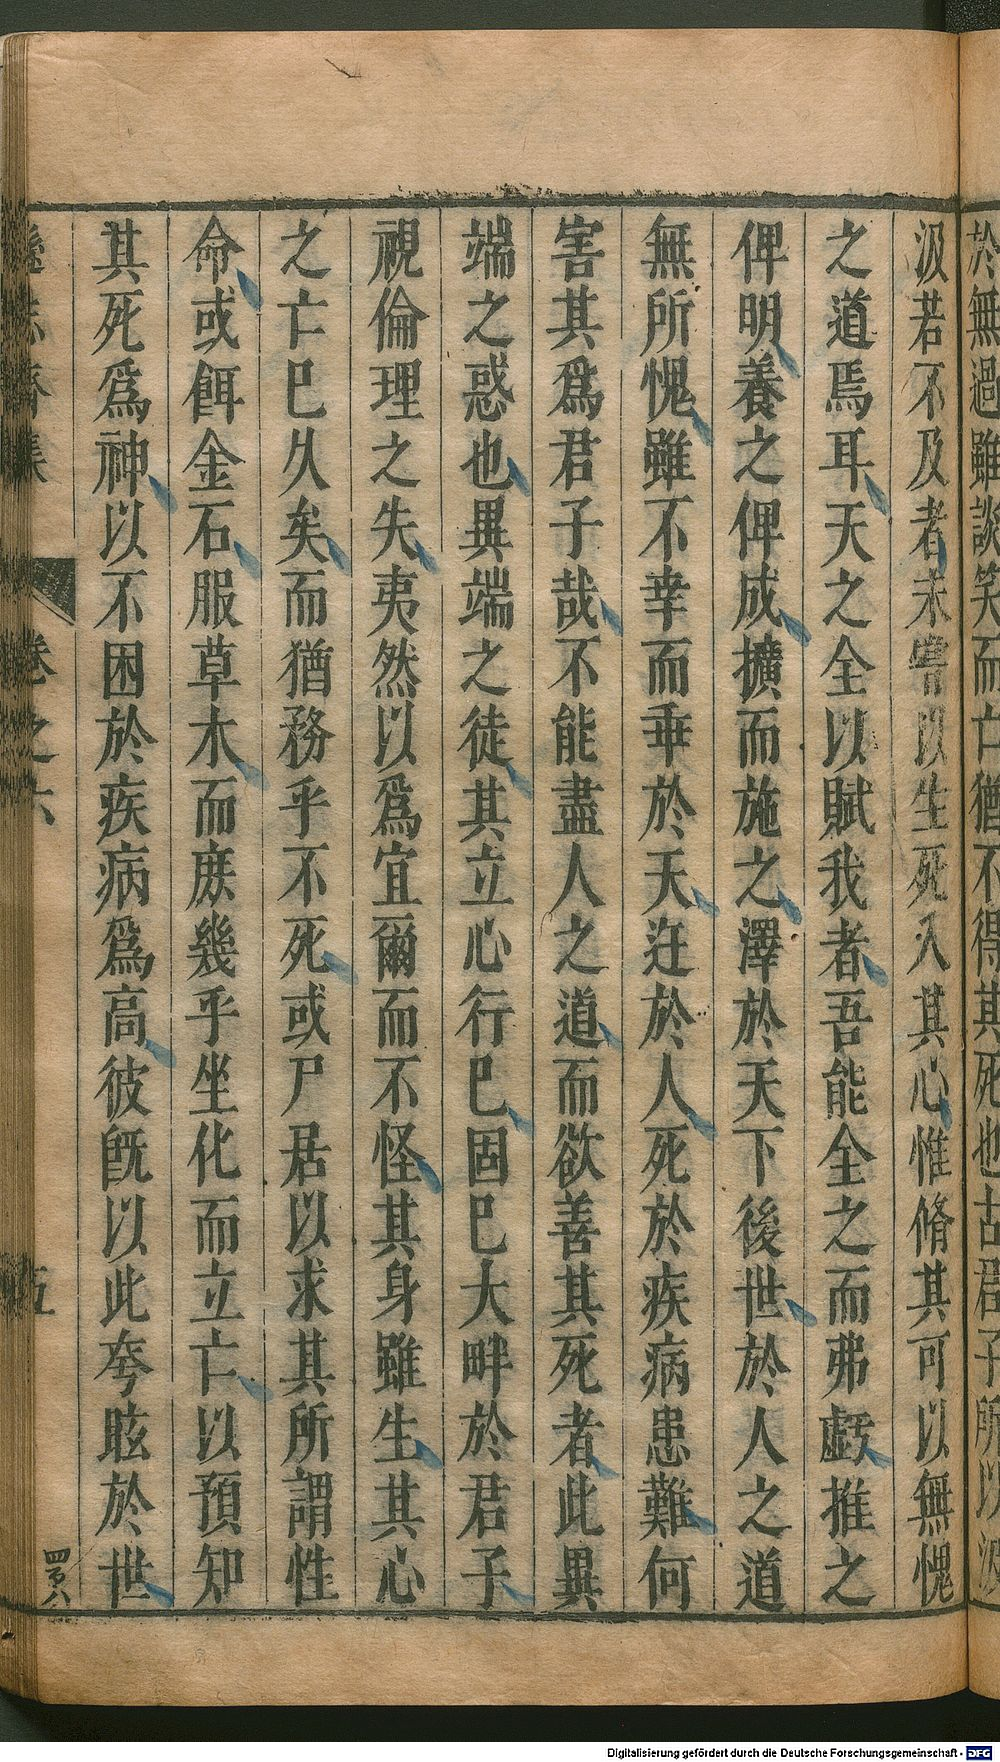 於無過雖談笑而亡猶不得其死也古君子所以汲
汲若不及者未嘗以生死入其心惟脩其可以無愧
之道焉耳天之全以賦我者吾能全之而弗虧推之
俾明養之俾成擴而施之澤於天下後世於人之道
無所愧雖不幸而垂於天迕於人死於疾病患難何
害其爲君子哉不能盡人之道而欲善其死者此異
端之惑也異端之徒其立心行巳固巳大畔於君子
視倫理之失夷然以爲宜爾而不怪其身雖生其心
之亡巳久矣而猶務乎不死或尸居以求其所謂性
命或餌金石服草木而庶幾乎坐化而立亡以預知
其死爲神以不困於疾病爲高彼旣以此夸眩於世
遜志齋集 卷之六 五
Digitalisierung gefördert durch die Deutsche Forschungsgemeinschaft - DFG